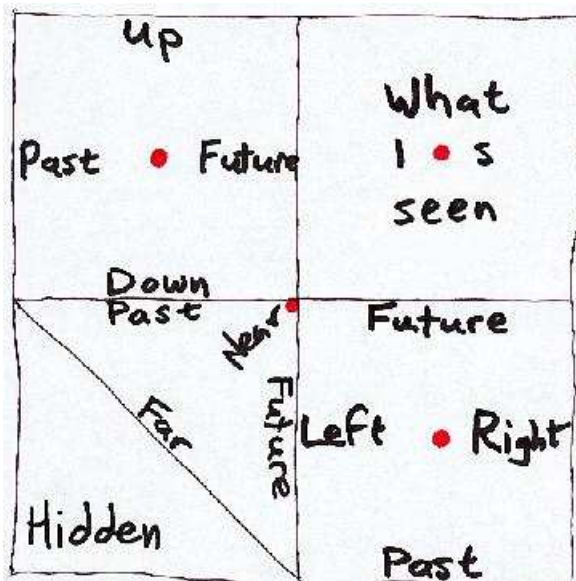 Up
Past Future
Down
What
I s
seen
Past
Near
Future
Far
Hidden
Future
Left Right
Past